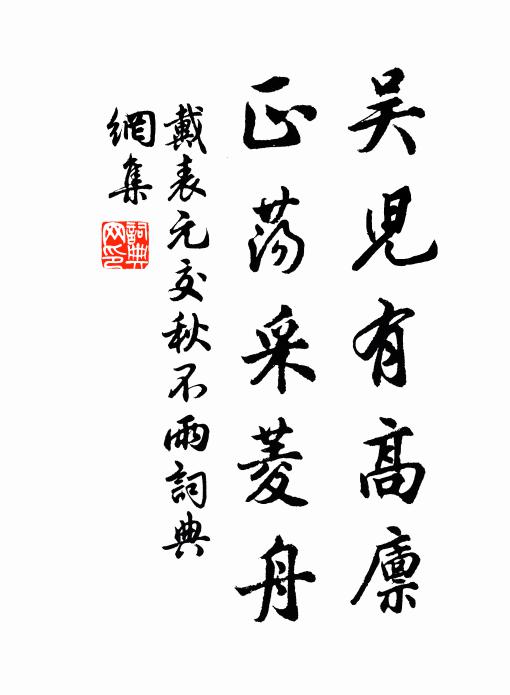 吴児有高廪
正荡采菱舟
戴表元交秋不雨詞典
網集
詞典
网印